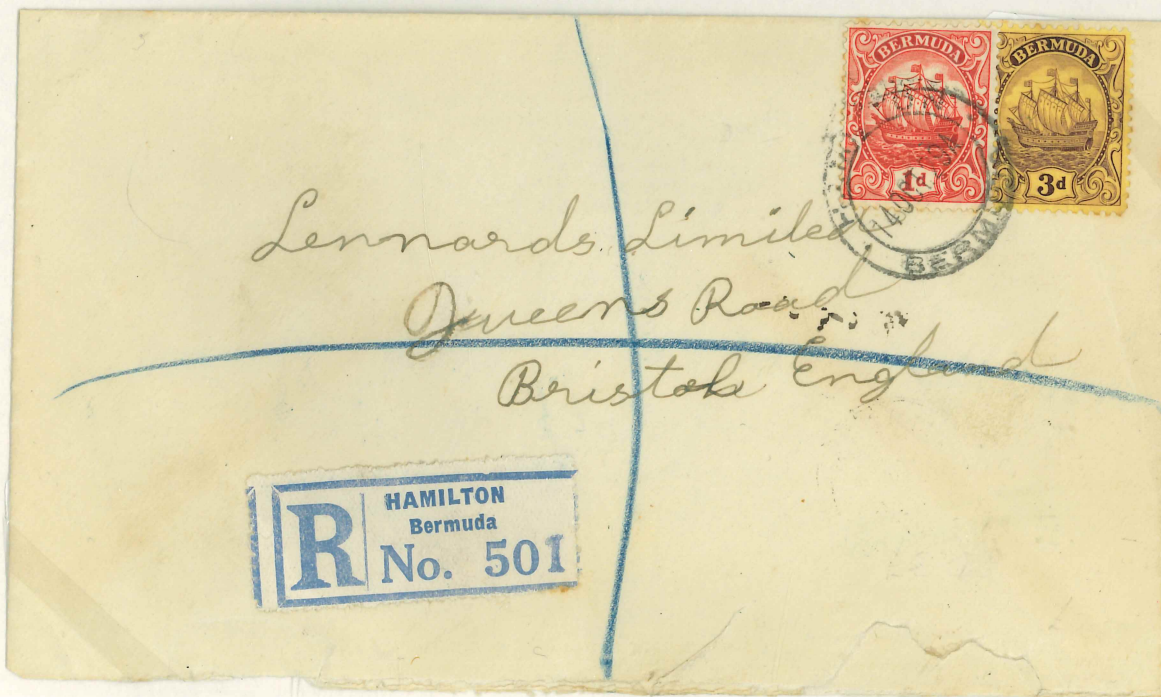 BERMUDA
1d
BERMUDA
3d
BERMUDA
Lennards Limited
Queens Road
Bristol England
R
HAMILTON
Bermuda
No. 501